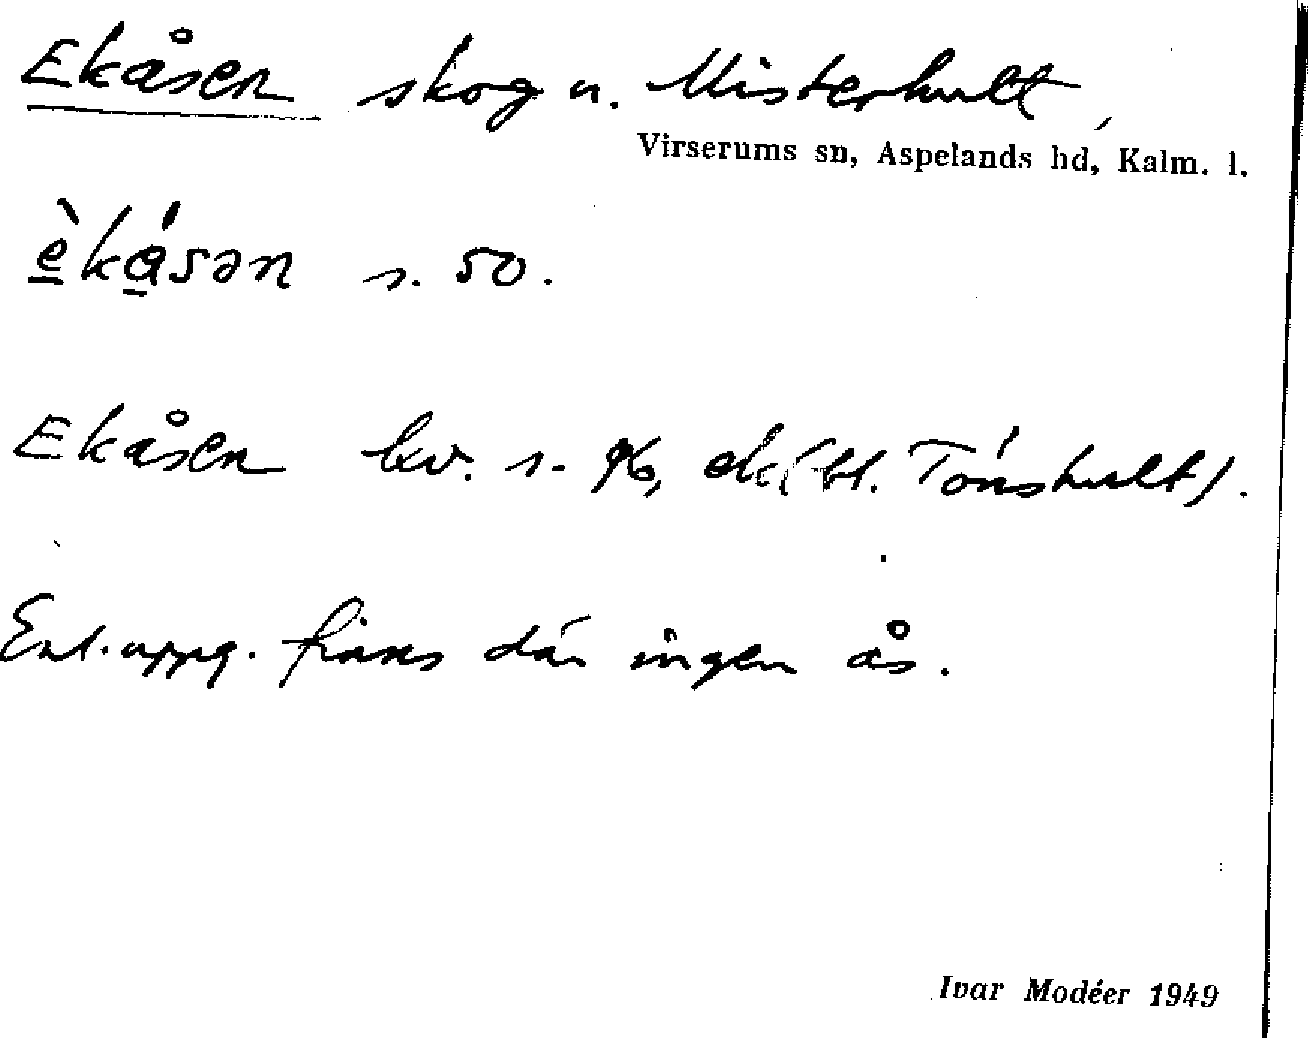 Ekåsen skog u. Misterhult,
Virserums sn, Aspelands hd, Kalm. l.
èkåsən s. 50.
Ekåsen s. ek (bl. Tönshult).
Enl. uppg. finns där ingen ås.
Ivar Modéer 1949